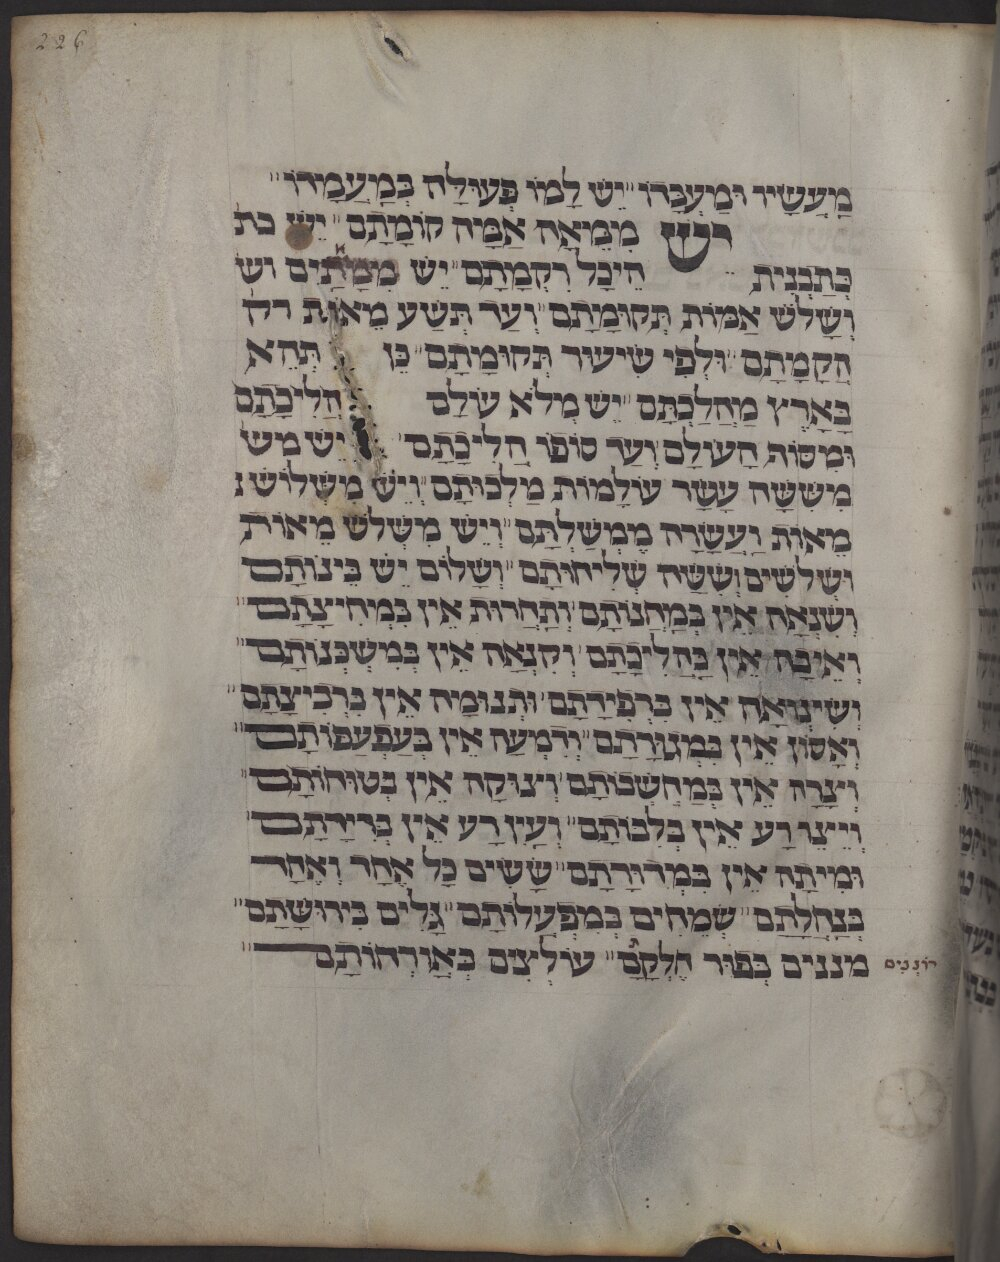 226
מַעֲשָׂיו וּמַעְבָּדוֹ יֵשׁ לָמוֹ פְּעוּלָּה בְּמַעֲמָדוֹ
יש מִמֵּאָה אַמָּה קוֹמָתָם יֵשׁ כת
כְּתַבְנִית הֵיכָל רִקְמָתָם יֵשׁ וש
וְשָׁלֹשׁ אַמּוֹת תְּקוּמָתָם וְעַד תְּשַׁע מֵאוֹת רק
הֲקָמָתָם וּלְפִי שִׁיעוּר תְּקוּמָתָם כֵּן תְּהֵא
בָּאָרֶץ מַהֲלַכְתָּם יֵשׁ מִלֹא עוֹלָם הֲלִיכָתָם
וּמִסּוֹף הָעוֹלָם וְעַד סוֹפוֹ הֲלִיכָתָם יֵשׁ מש
מִשִּׁשָּׁה עָשָׂר עוֹלָמוֹת מַלְכוּתָם וְיֵשׁ מִשְּׁלוֹשׁ
מֵאוֹת וַעֲשָׂרָה מֶמְשַׁלְתָּם וְיֵשׁ מִשְּׁלֹשׁ מֵאוֹת
וּשְׁלֹשִׁים וְשִׁשָּׁה שְׁלִיחוּתָם וְשָׁלוֹם יֵשׁ בֵּינוֹתָם
וְשִׂנְאָה אֵין בְּמַחֲנוֹתָם וְתַחֲרוּת אֵין בִּמְחִיצָתָם
וְאֵיבָה אֵין בַּהֲלִיכָתָם וְקִנְאָה אֵין בְּמִשְׁכְּנוֹתָם
וְשִׂינְאָה אֵין בִּרְפִידָתָם וּתְנוּמָה אֵין בִּרְבִיצָתָם
וְאָסוֹן אֵין בִּמְגוּרָתָם וְדִמְעָה אֵין בְּעַפְעַפּוֹתָם
וְצָרָה אֵין בְּמַחְשְׁבוֹתָם וְצוּקָה אֵין בְּטוּחוֹתָם
וְיֵצֶר רַע אֵין בְּלִבּוֹתָם וְעַיִן רַע אֵין בְּדִירָתָם
וּמִיתָה אֵין בִּמְדוּרָתָם שָׂשִׂים כָּל אֶחָד וְאֶחָד
בְּנַחֲלָתָם שְׂמֵחִים בְּמִפְעֲלוֹתָם גָּלִים בִּירוּשָּׁתָם
מננים בְּפוּר חֶלְקָם עוֹלְצִים בְּאוֹרְחוֹתָם
רוֹנְנִים